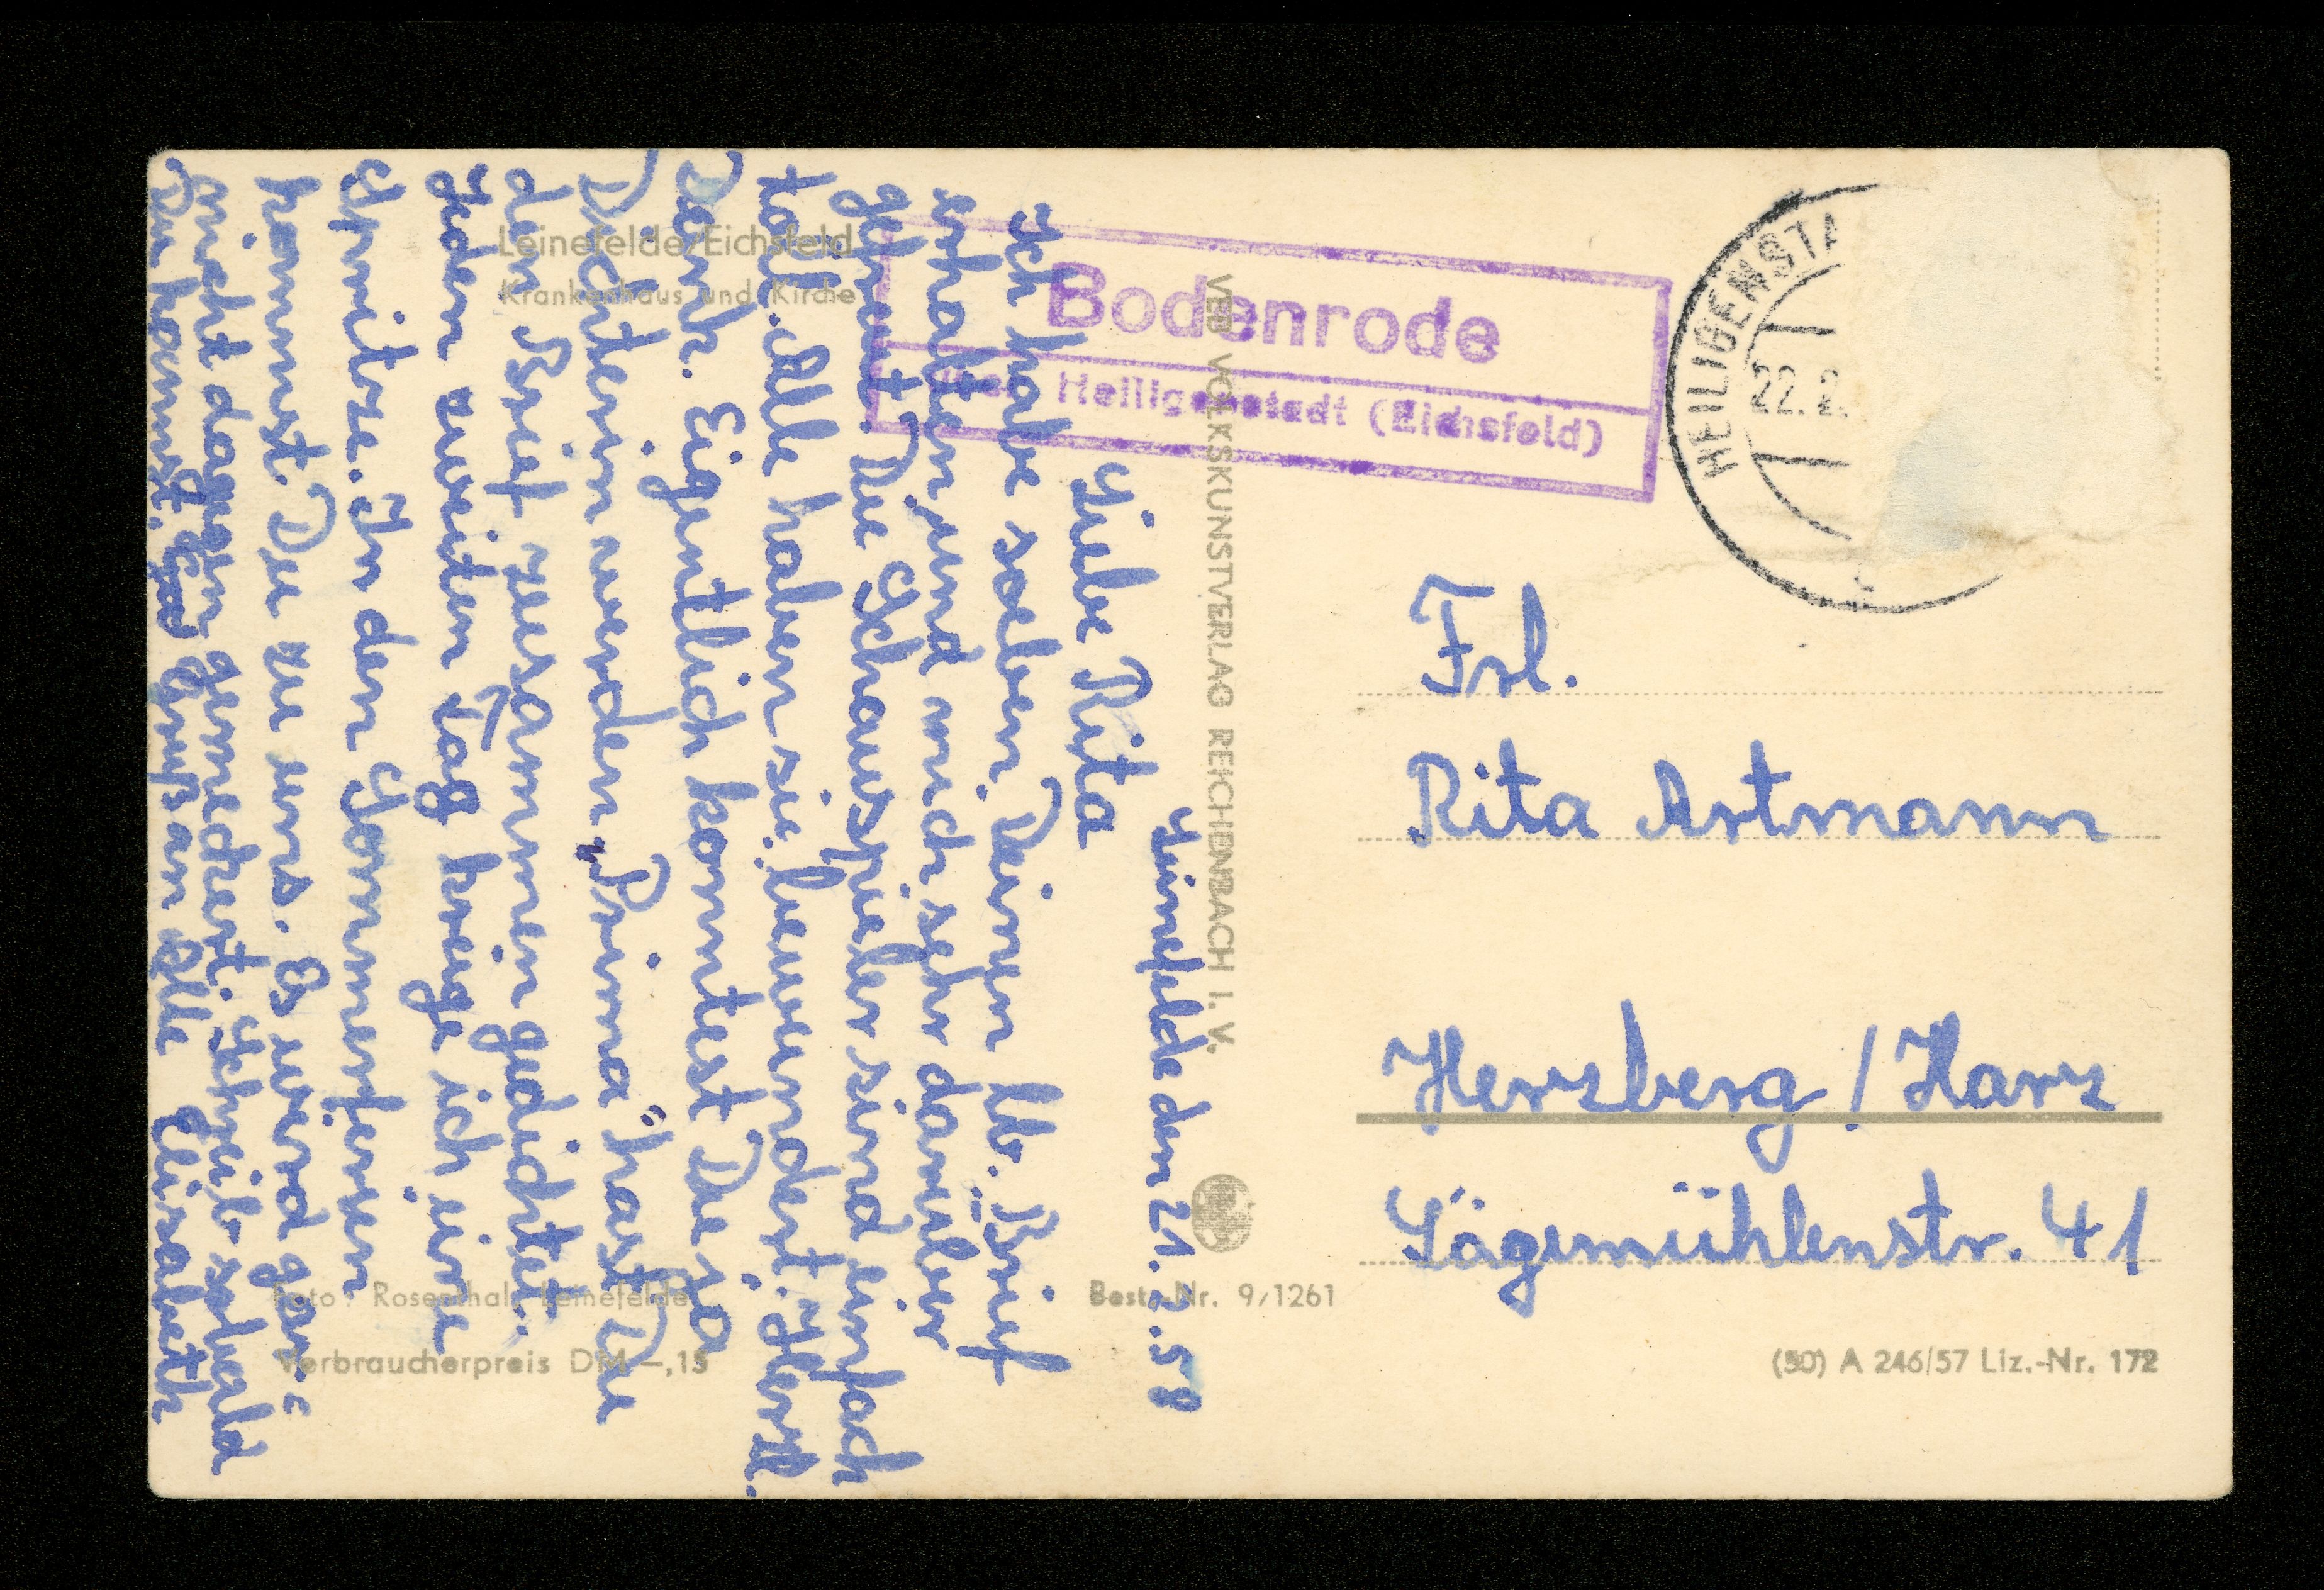 Leinefelde den 21.2.58
Liebe Rita
Ich habe soeben Deinen lb. Brief
erhalten und mich sehr darüber
gefreut. Die Schauspieler sind einfach
toll. Alle haben sie bewundert. Herzl.
Dank. Eigentlich komtest Du ja
Dichterin werden. "Prima" hast Du
den Brief zusammen gedichtet.
Jeden zweiten Tag kriege ich eine
Spritze. In den Sommerferien
kommst Du zu uns. Es wird gar
nicht dagegen gemeckert. Schreib sobald
Du kommst. Gruß an Alle Elisabeth
Leinefelde/Eichsfeld
Krankenhaus und Kirche
Foto: Rosenthal, Leinefelde
Verbraucherpreis DM -,15
VEB VOLKSKUNSTVERLAG REICHENBACH I. V.
Best.-Nr. 9/1261
Bodenrode
über Heiligenstadt (Eichsfeld)
HEILIGENSTA
22.2.
Frl.
Rita Artmann
Herzberg / Harz
Sägemühlenstr. 41
(50) A 246/57 Liz.-Nr. 172